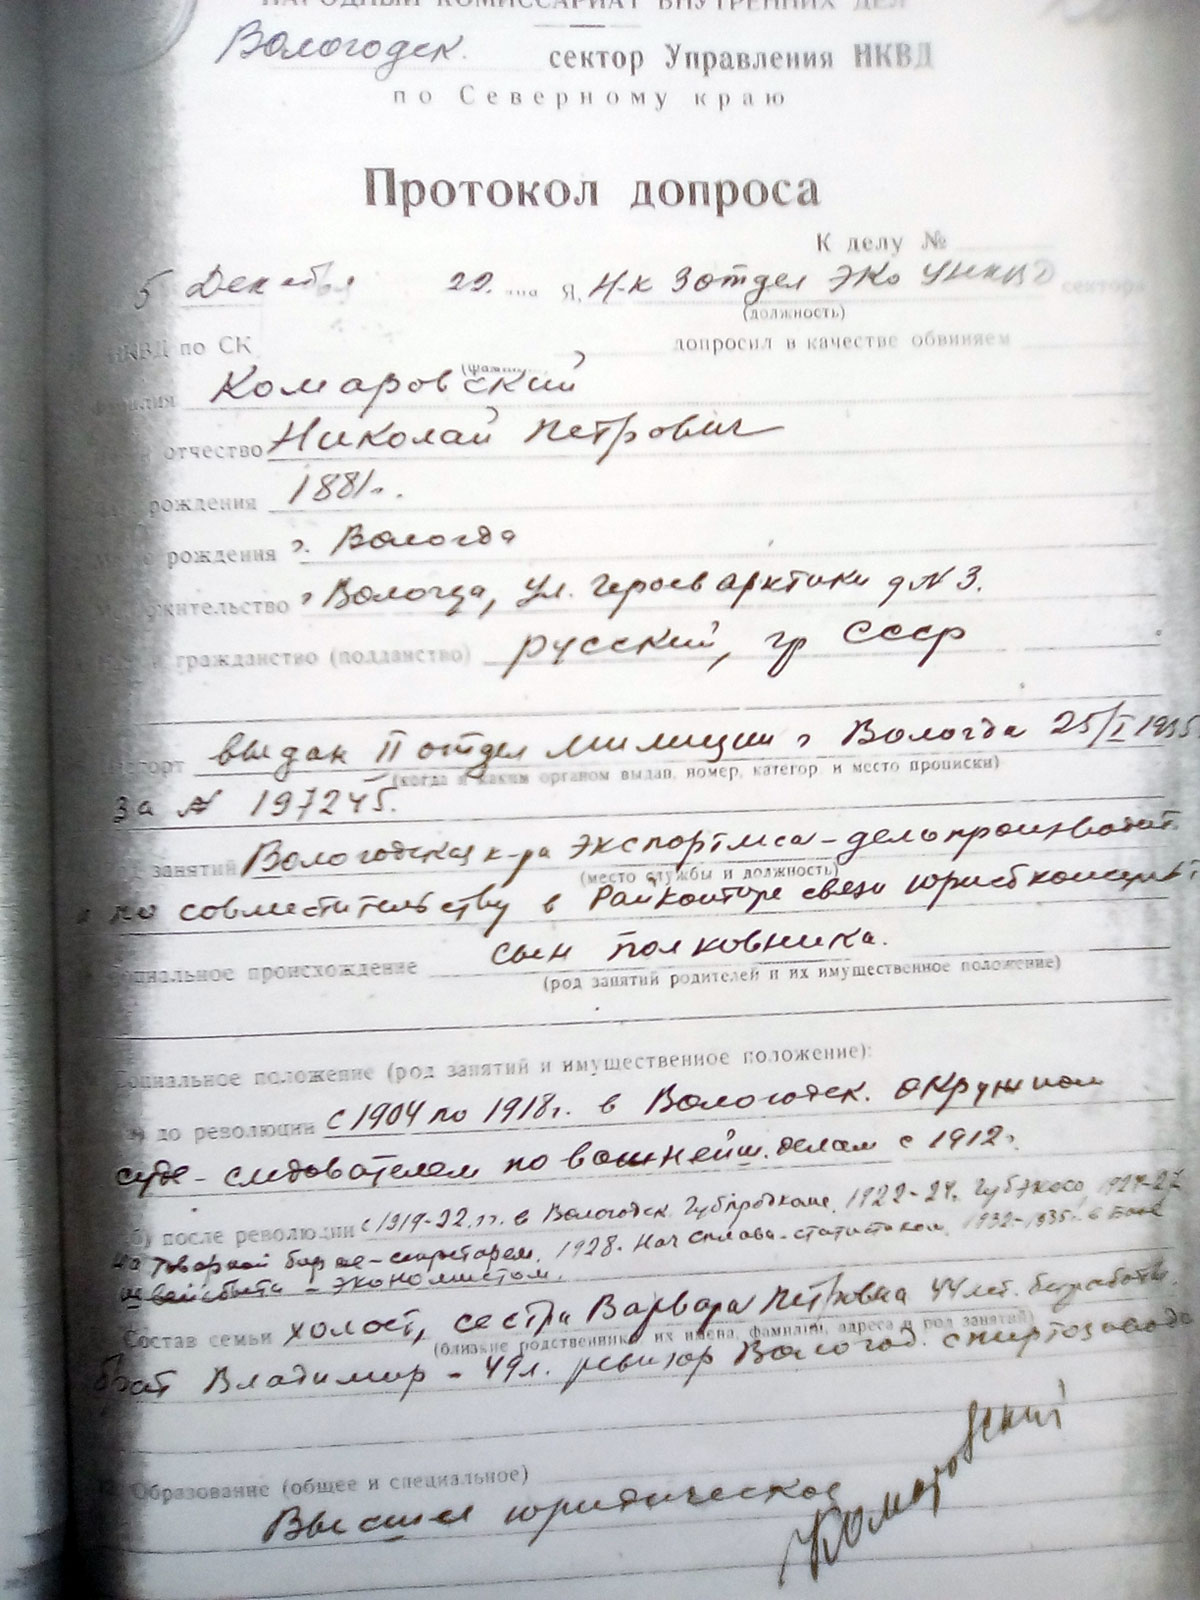 НАРОДНЫЙ КОМИССАРИАТ ВНУТРЕННИХ ДЕЛ
Вологодск. сектор Управления НКВД
по Северному краю
Протокол допроса
К делу №
5 Декабря Я, Н-к 3 отдел ЭКО УНКВД сектора
(должность)
НКВД по СК допросил в качестве обвиняем
Комаровский
отчество Николай Петрович
рождения 1881 г.
рождения г. Вологда
жительство г Вологда, ул. Героев арктики д N 3.
и гражданство (подданство) русский, гр СССР
выдан II отдел милиции г Вологда 25/I 1935
(когда и каким органом выдан, номер, категор. и место прописки)
за № 197245.
занятий Вологодская к-ра Экспортлеса - делопроизводит.
(место службы и должность)
и по совместительству в Райконторе связи юрисконсульт
социальное происхождение сын полковника.
(род занятий родителей и их имущественное положение)
Социальное положение (род занятий и имущественное положение):
а) до революции с 1904 по 1918 г. в Вологодск. окружном
суде - следователем по важнейш. делам с 1912 г.
б) после революции с 1919-22 гг. в Вологодск. Губпродкоме, 1922-24. ГубЭкосо, 1924-27
на товарной бирже - секретарем, 1928. сплава - статистиком, 1932-1935 г. в
- экономистом.
Состав семьи холост, сестра Варвара Петровна 44 лет. безработн.
(близкие родственники, их имена, фамилии, адреса и род занятий)
брат Владимир - 49 л. ревизор Вологод. спиртозавода
Образование (общее и специальное)
Высшее юридическое
Комаровский